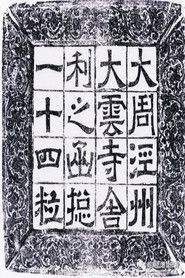 大周泾州
大雲寺舍
利之函揔
一十四粒